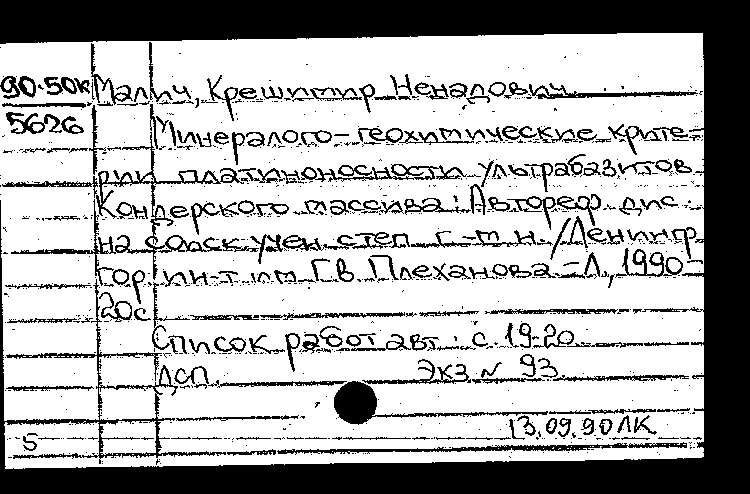 90-50к Малич, Крешимир Ненадович
5626 Минералого-геохимические крите-
рии платиноносности ультрабазитов
Кондерского массива: Автореф. дис.
на соиск учен степ г.-м н. / Ленингр
гор ин-т им Г В Плеханова - Л., 1990 -
20с
Список работ авт.: с 19-20
ДСП. Экз N 93
13.09.90 ЛК
5